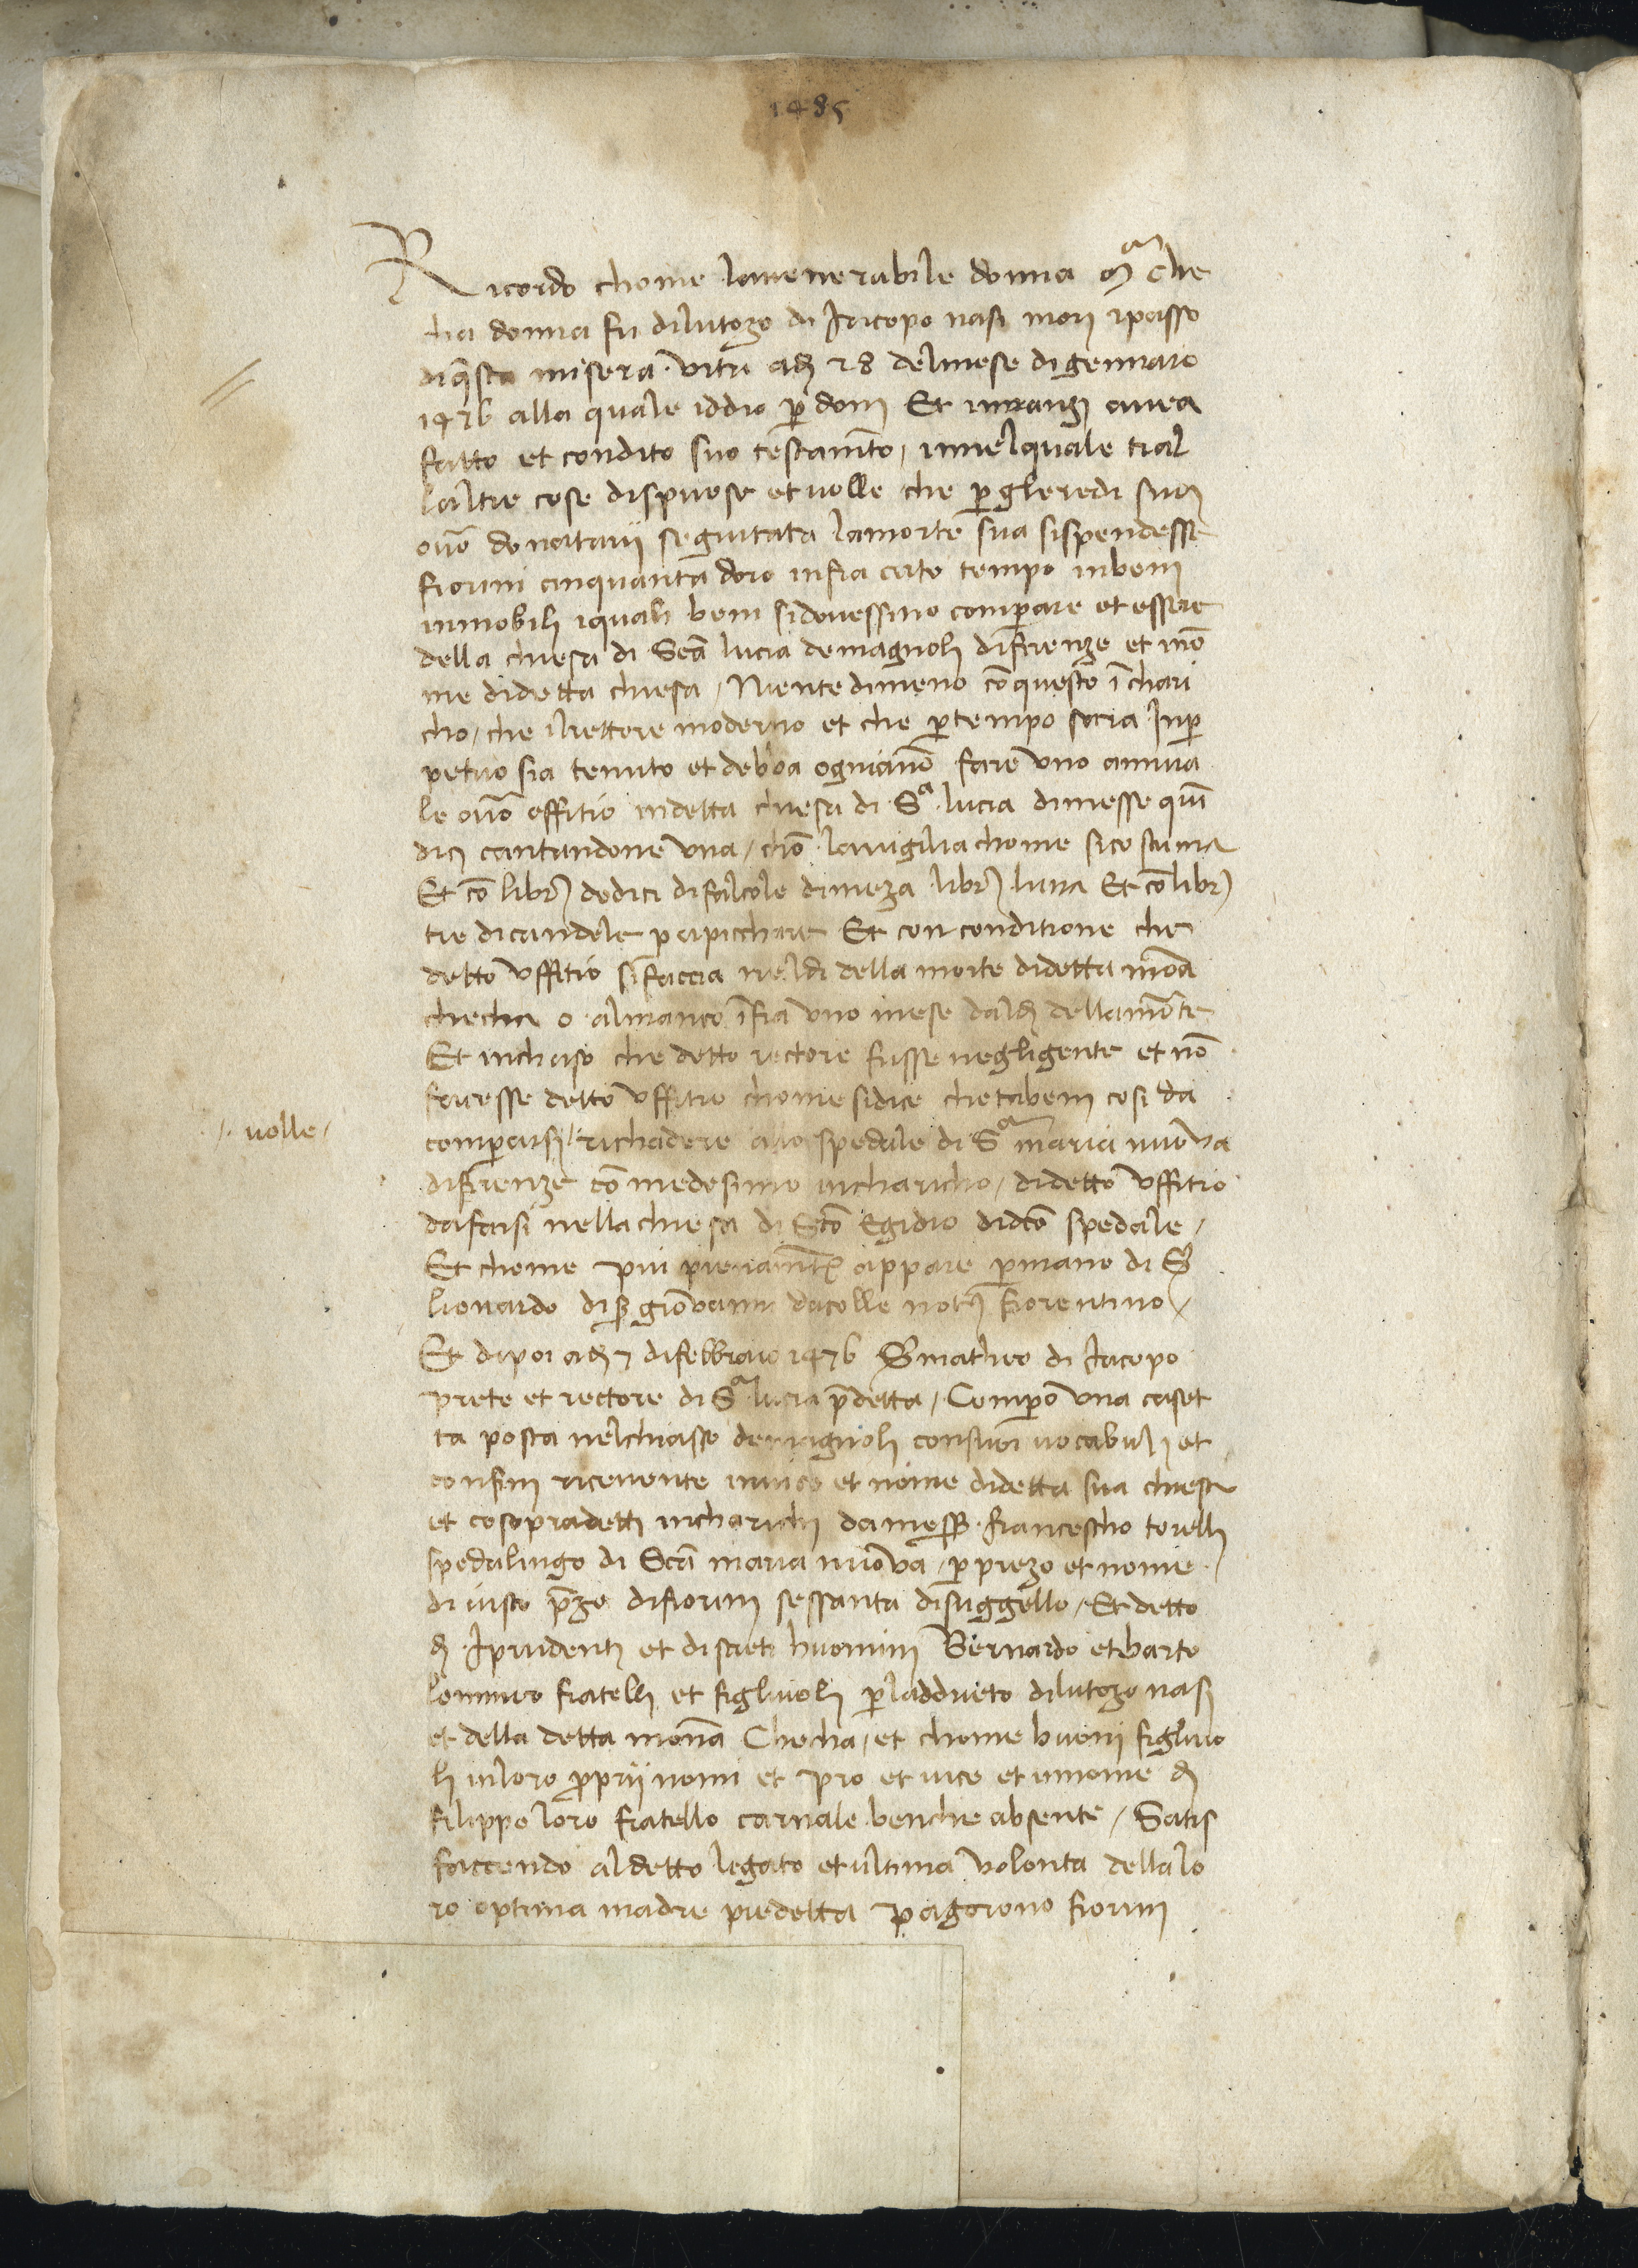 1485
Ricordo chome lavenerabile donna Mª che
cha donna fu dilutozo di Iacopo nasi mori ipasso
diq̄sta misera vita adj 28 delmese digennaio
1476 alla quale iddio p̄doni Et innanzi avea
fatto et condito suo testam̄to, innelquale tral
laltre cose dispuose et volle che p̄ glieredi suoj
ovō donatarij seguitata lamorte sua sispendesse
fiorini cinquanta doro infra certo tempo inbeni
inmobili iquali beni sidovessino comperare et essere
della chiesa di Scā lucia demagnoli difirenze et ī no
me didetta chiesa, Niente dimeno cō questo īchari
cho, che ilrettore moderno et che p̄ tempo sara Inp̄
petuo sia tenuto et debba ogniānō fare uno annua
le ovō offitio indetta chiesa di Sª lucia dimesse quī
dicj cantandone una, chō lavigilia chome sicostuma
Et cō libr̄ dodici difalcole dimeza libr̄ luna Et cō libr̄
tre dicandele p̄ apicchare Et con conditione che
detto uffitio sifaccia neldi della morte didetta mōa
checha o almanco īfra uno mese daldj dellamorte
Et inchaso che detto rectore fusse negligente et nō
facesse detto uffitio chome sidice chetabeni cosi da
comperarsi richadere allo spedale di Sª maria nuova
·volle·
difirenze cō medesimo incharicho, didetto uffitio
dafarsi nellachiesa di Scō Egidio didcō spedale,
Et chome piu pienam̄te appare p̄ mano di S̄
lionardo di s̄ giovanni dacolle not° fiorentino,
Et dipoi adj 7 difebbraio 1476 S̄ matheo di Iacopo
prete et rectore di Sª lucia p̄detta, Comperò una caset
ta posta nelchiasso demagnoli consuoi vocabuli et
confini ricevente invice et nome didetta sua chiesa
et cosopradetti incharichi damess̄ francescho torelli
spedalingo di Scā maria nuova, p̄ prezo et nome
di iusto p̄zo difiorini sessanta disuggello, Et detto
dj Iprudenti et discreti huomini Bernardo et barto
lommeo fratelli et figliuoli p̄ laddrieto dilutozo nasi
et della detta mona Checha, et chome buoni figliuo
li inloro p̄prij nomi et pro et vice et innome dj
filippo loro fratello carnale benche absente, Satis
faccendo aldetto legato et ultima volonta dellalo
ro optima madre predetta pagorono fiorini